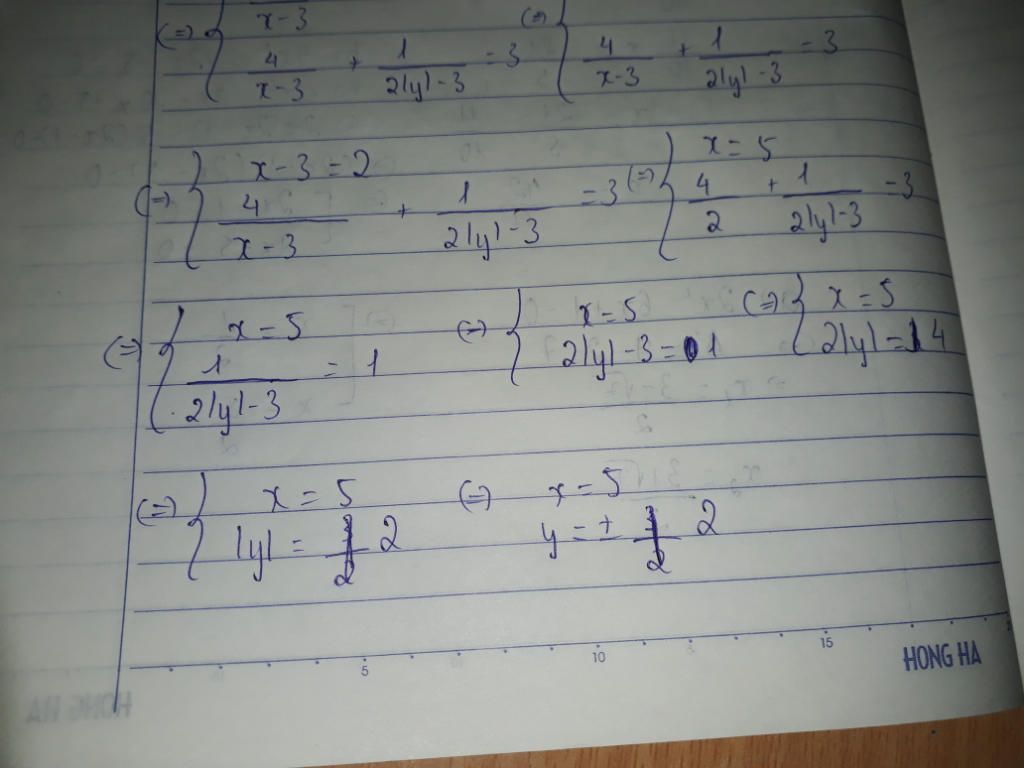 x-3
(=) { 4/(x-3) + 1/(2|y|-3) = 3 (=) { 4/(x-3) + 1/(2|y|-3) = 3
(=) { x-3 = 2
4/(x-3) + 1/(2|y|-3) = 3 (=) { x = 5
4/2 + 1/(2|y|-3) = 3
(=) { x = 5
1/(2|y|-3) = 1 (=) { x = 5
2|y|-3 = 1 (=) { x = 5
2|y| = 4
(=) { x = 5
|y| = 2 (=) x = 5
y = ± 2
5 10 15
HONG HA